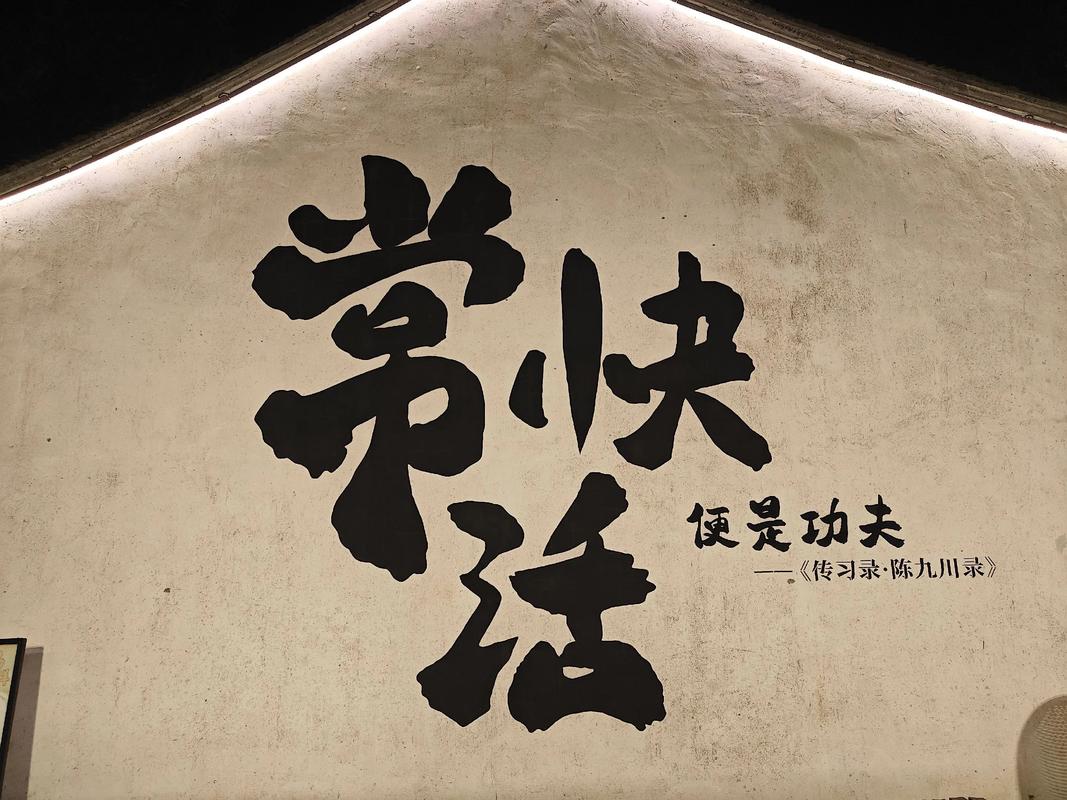 常快活
便是功夫
——《传习录·陈九川录》